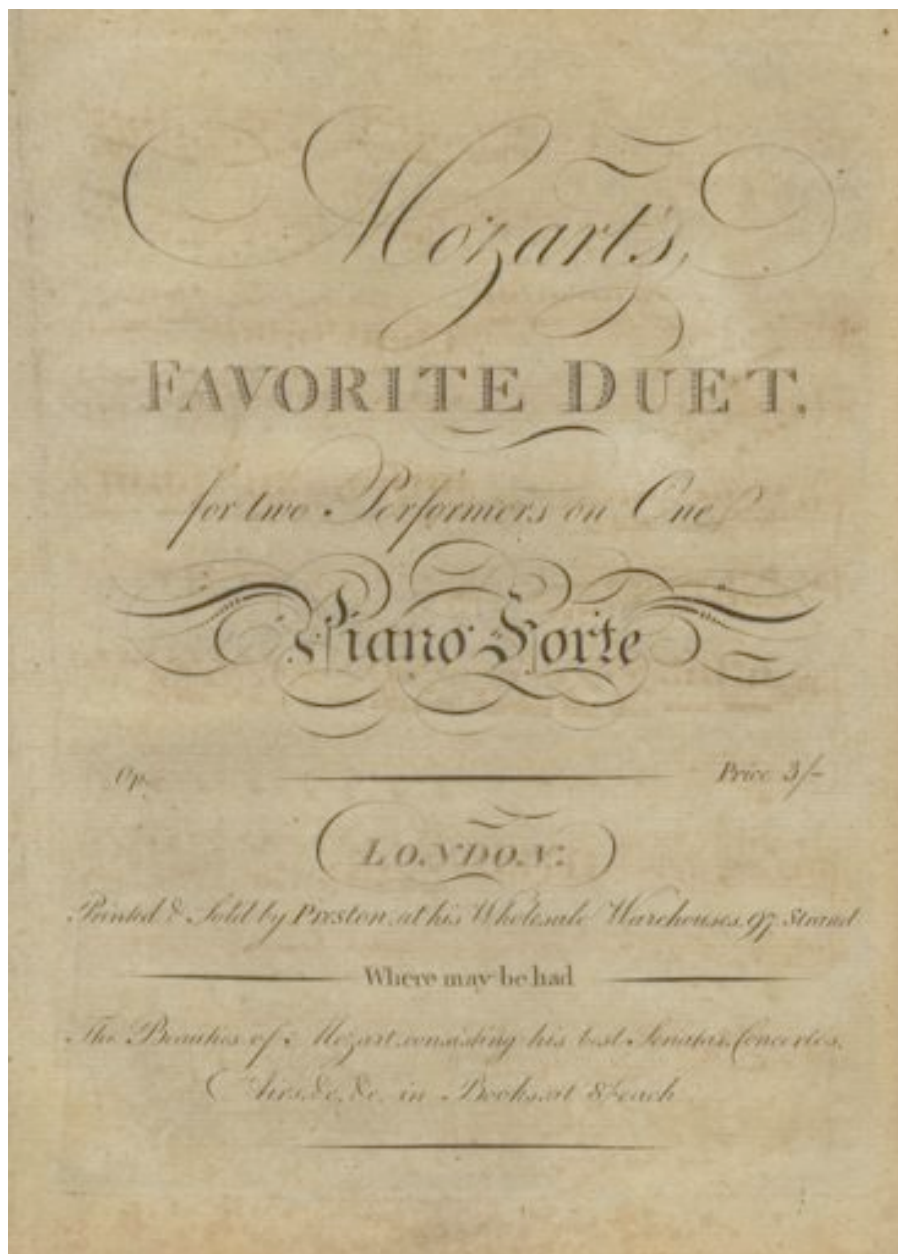 Mozart's,
FAVORITE DUET,
for two Performers on One
Piano Forte
Op. Price 3/-
LONDON:
Printed & Sold by Preston, at his Wholesale Warehouses, 97, Strand
Where may be had
The Beauties of Mozart, consisting his best Sonatas, Concertos,
Airs, &c, &c. in Books, at 8/- each